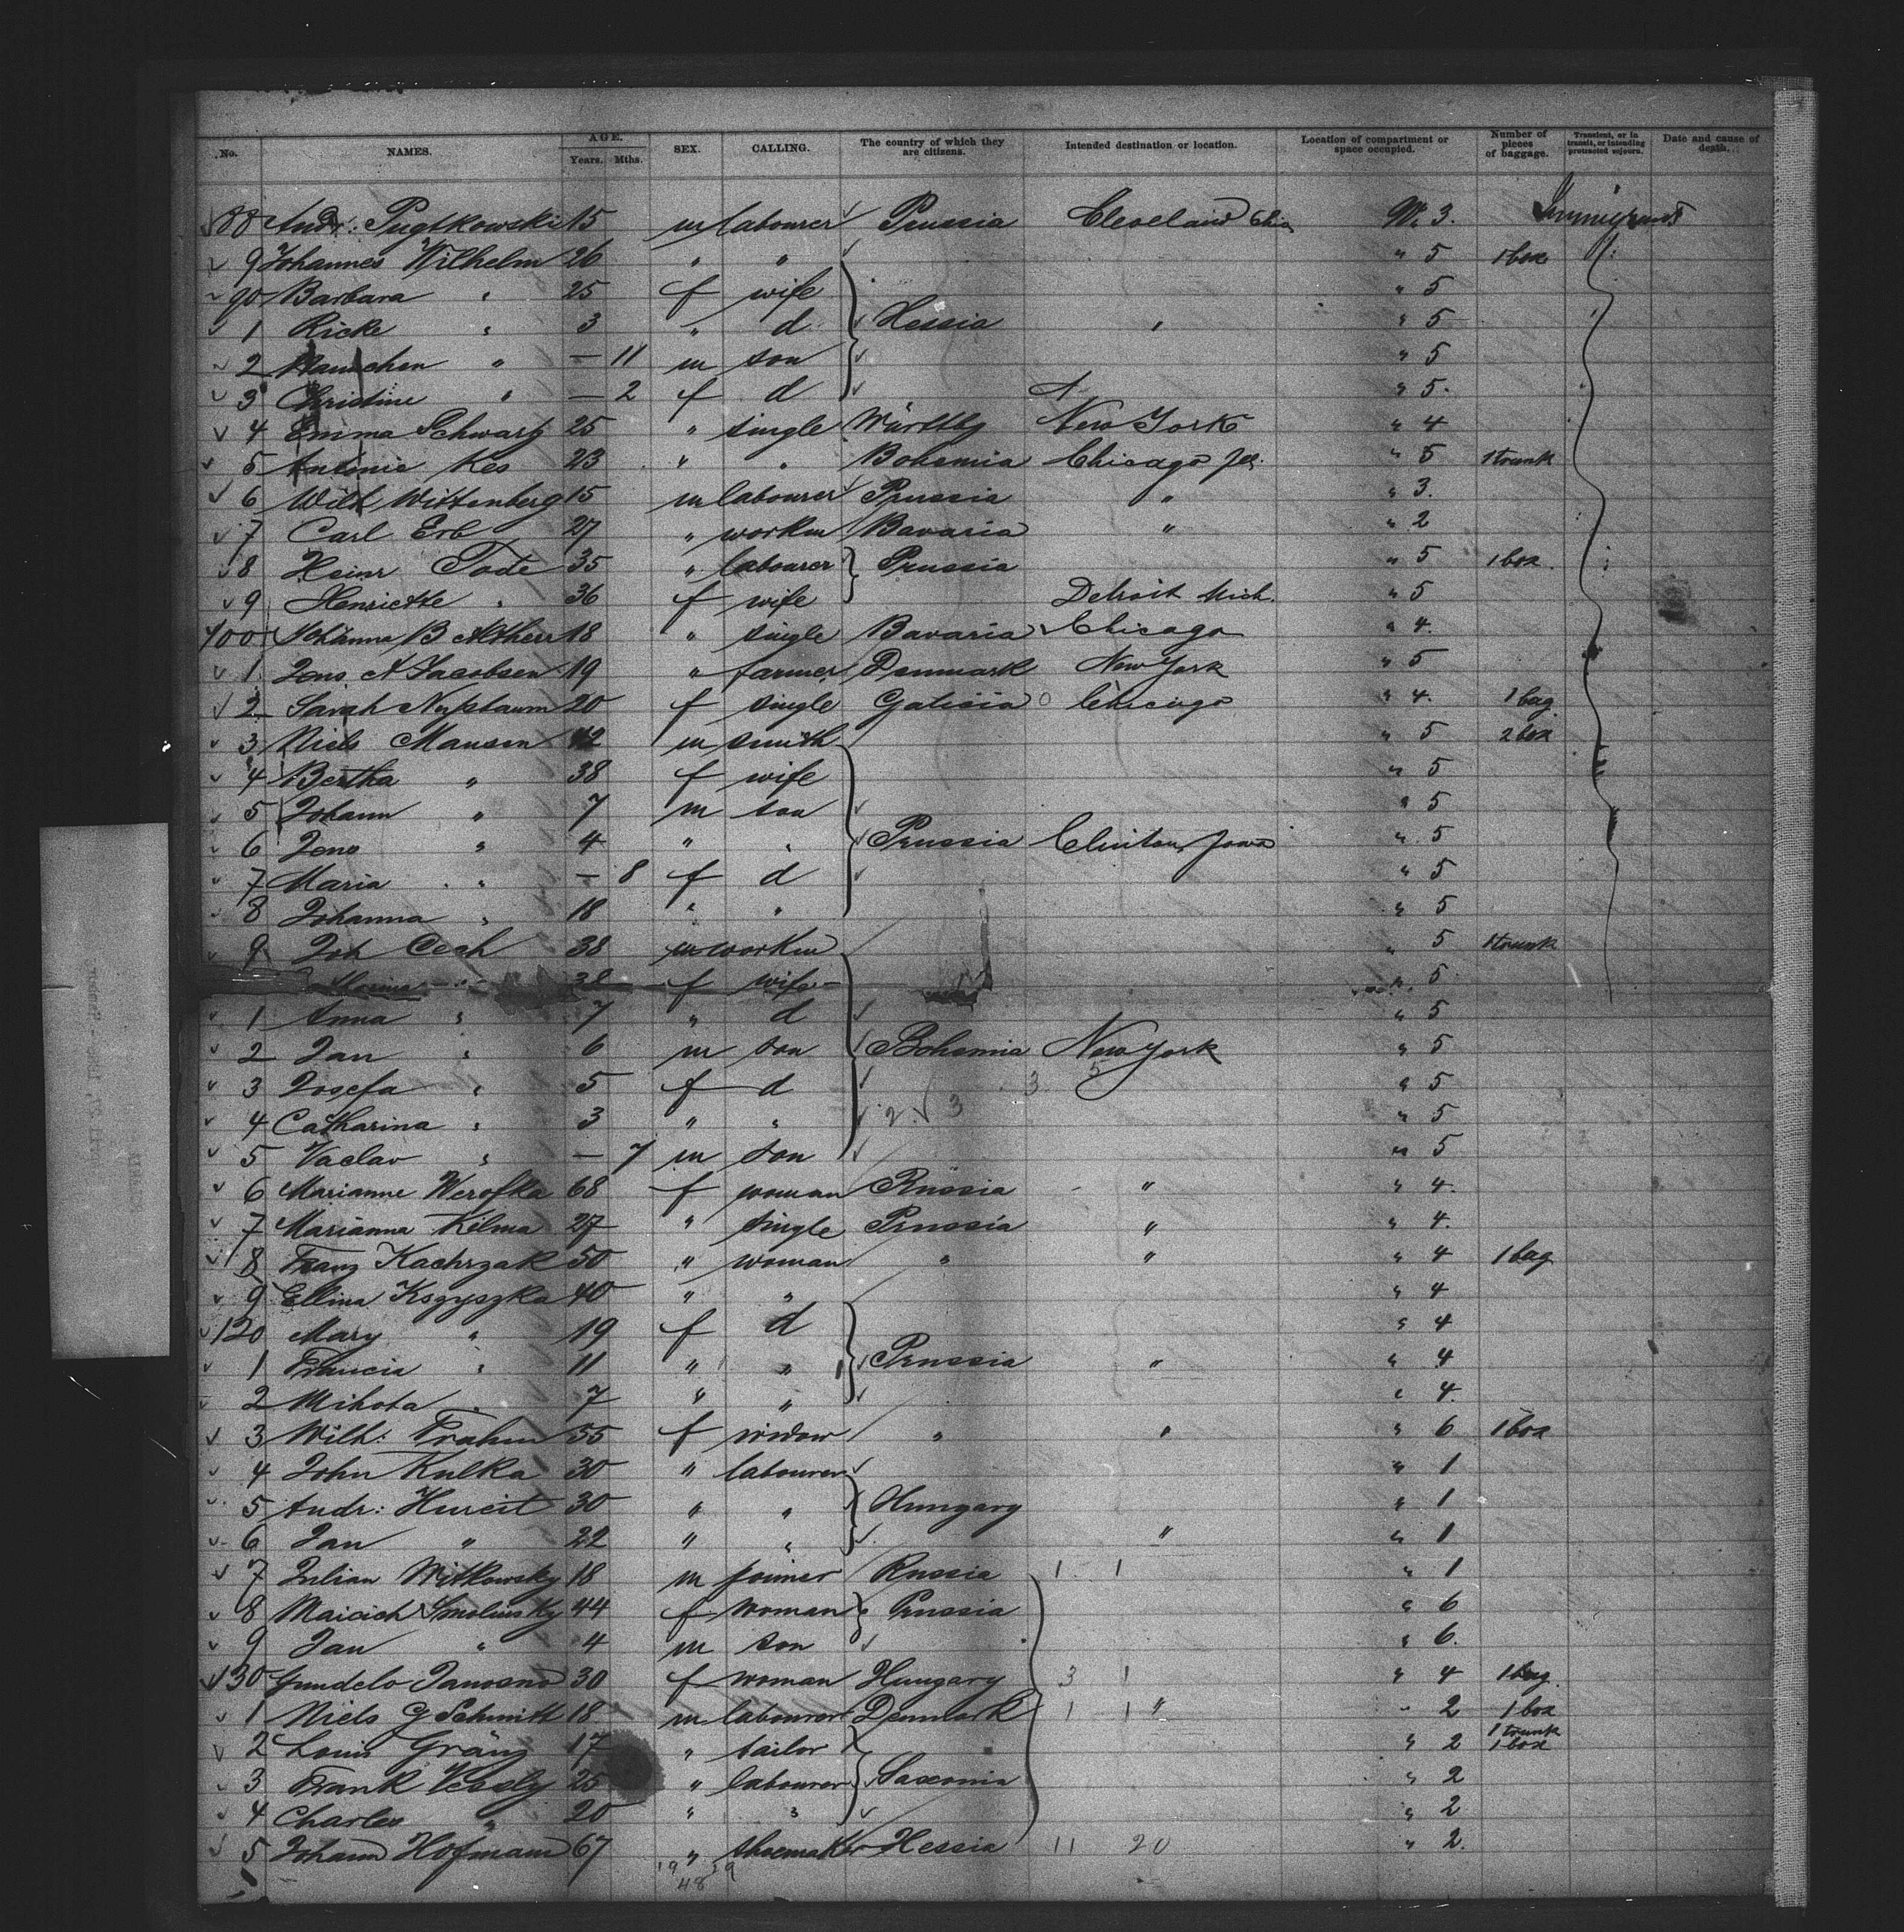 No. NAMES. AGE. Years. Mths. SEX. CALLING. The country of which they are citizens. Intended destination or location. Location of compartment or space occupied. Number of pieces of baggage. Transient, or in transit, or intending protracted sojourn. Date and cause of death.
88 Andr: 15 m labourer Prussia Cleveland Ohio 3.
9 Johannes Wilhelm 26 " " " 5 1 box
90 Barbara " 25 f wife " 5
1 Ricke " 3 " d Hessia " " 5
2 " — 11 m son " 5
3 Christine " — 2 f d " 5.
4 Emma Schwarz 25 " single Württbg New York " 4
5 Antonie Kes 23 " " Bohemia Chicago " 5 1 trunk
6 Wilh Wittenberg 15 m labourer Prussia " " 3.
7 Carl Erb 27 " workm Bavaria " " 2
8 Heinr Tode 35 " labourer Prussia " 5 1 box
9 Henriette " 36 f wife Detroit Mich. " 5
100 Johanna B 18 " single Bavaria Chicago " 4.
1 Jens A Jacobsen 19 " farmer Denmark New York " 5
2 Sarah 20 f single Galicia Chicago " 4. 1 bag
3 Niels Mausen 42 m smith " 5 2 box
4 Bertha " 38 f wife " 5
5 Johann " 7 m son " 5
6 Jens " 4 " " Prussia Clinton Jowa " 5
7 Maria " — 8 f d " 5
8 Johanna " 18 " " " 5
9 Joh Cech 38 m workm " 5 1 trunk
" 38 f wife " 5
1 Anna " 7 " d " 5
2 Jan " 6 m son Bohemia New York " 5
3 Josefa " 5 f d " 5
4 Catharina " 3 " " " 5
5 Vaclav " — 7 m son " 5
6 Marianne Werofka 68 f woman Russia " " 4.
7 Marianna Kelma 27 " single Prussia " " 4.
8 Franz Kachrzak 50 " woman " " " 4 1 bag
9 Ellina Kszyszka 40 " " " 4
120 Mary " 19 f d " 4
1 Francia " 11 " " Prussia " " 4
2 Mihota " 7 " " " 4.
3 Wilh: Frahm 55 f widow " " " 6 1 box
4 John Kulka 30 " labourer " 1
5 Andr: Hurcit 30 " " Hungary " 1
6 Jan " 22 " " " " 1
7 Julian Witkowsky 18 m joiner Russia 1 1 " 1
8 Smolinsky 44 f woman Prussia " 6
9 Jan " 4 m son " 6.
130 30 f woman Hungary 3 1 " 4 1 bag
1 Niels G Schmitt 18 m labourer Denmark 1 1 " " 2 1 box
2 Louis Gränz 17 " tailor " 2 1 trunk 1 box
3 Frank 25 " labourer Saxonia " 2
4 Charles " 20 " " " 2
5 Johann Hofmann 67 " shoemaker Hessia 11 20 " 2.
19 29
48